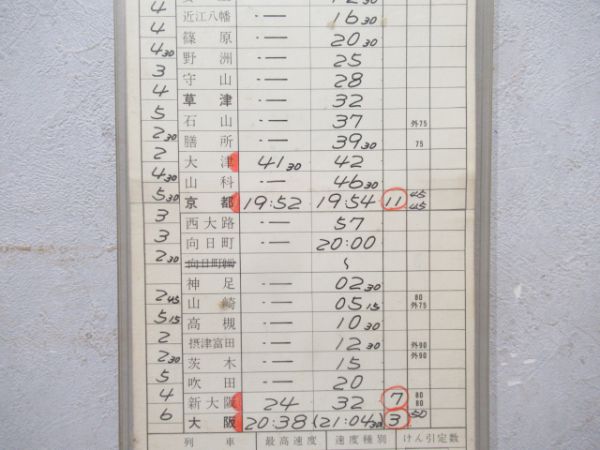 4 近江八幡 ・— 16 30
4 篠原 ・— 20 30
4 30 野洲 ・— 25
3 守山 ・— 28
4 草津 ・— 32
5 石山 ・— 37 外75
2 30 膳所 ・— 39 30 75
2 大津 41 30 42
4 30 山科 ・— 46 30
5 30 京都 19:52 19:54 11 45 45
3 西大路 ・— 57
3 向日町 ・— 20:00
2 30
神足 ・— 02 30
2 45 山崎 ・— 05 15 80 外75
5 15 高槻 ・— 10 30
2 摂津富田 ・— 12 30 外90
2 30 茨木 ・— 15 外90
5 吹田 ・— 20
4 新大阪 24 32 7 80 80
6 大阪 20:38 (21:04 30) 3 50
列車 最高速度 速度種別 けん引定数